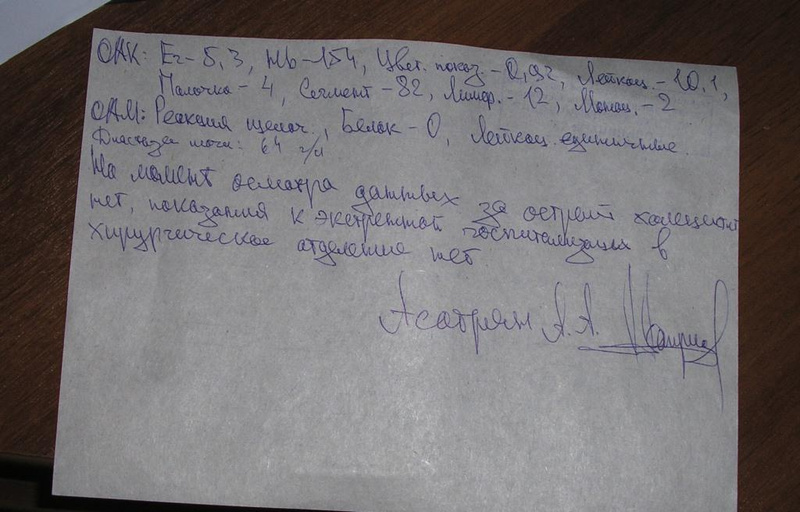 ОАК: Er - 5,3, Hb - 154, Цвет. показ. - 0,92, Лейкоц. - 10,1,
Палочка - 4, Сегмент - 82, Лимф. - 12, Моноц. - 2
ОАМ: Реакция щелоч., Белок - 0, Лейкоц. единичные.
Диастаза мочи: 64 г/л
На момент осмотра данных за острый холецистит
нет, показания к экстренной госпитализации в
хирургическое отделение нет
Асатрян А.А.